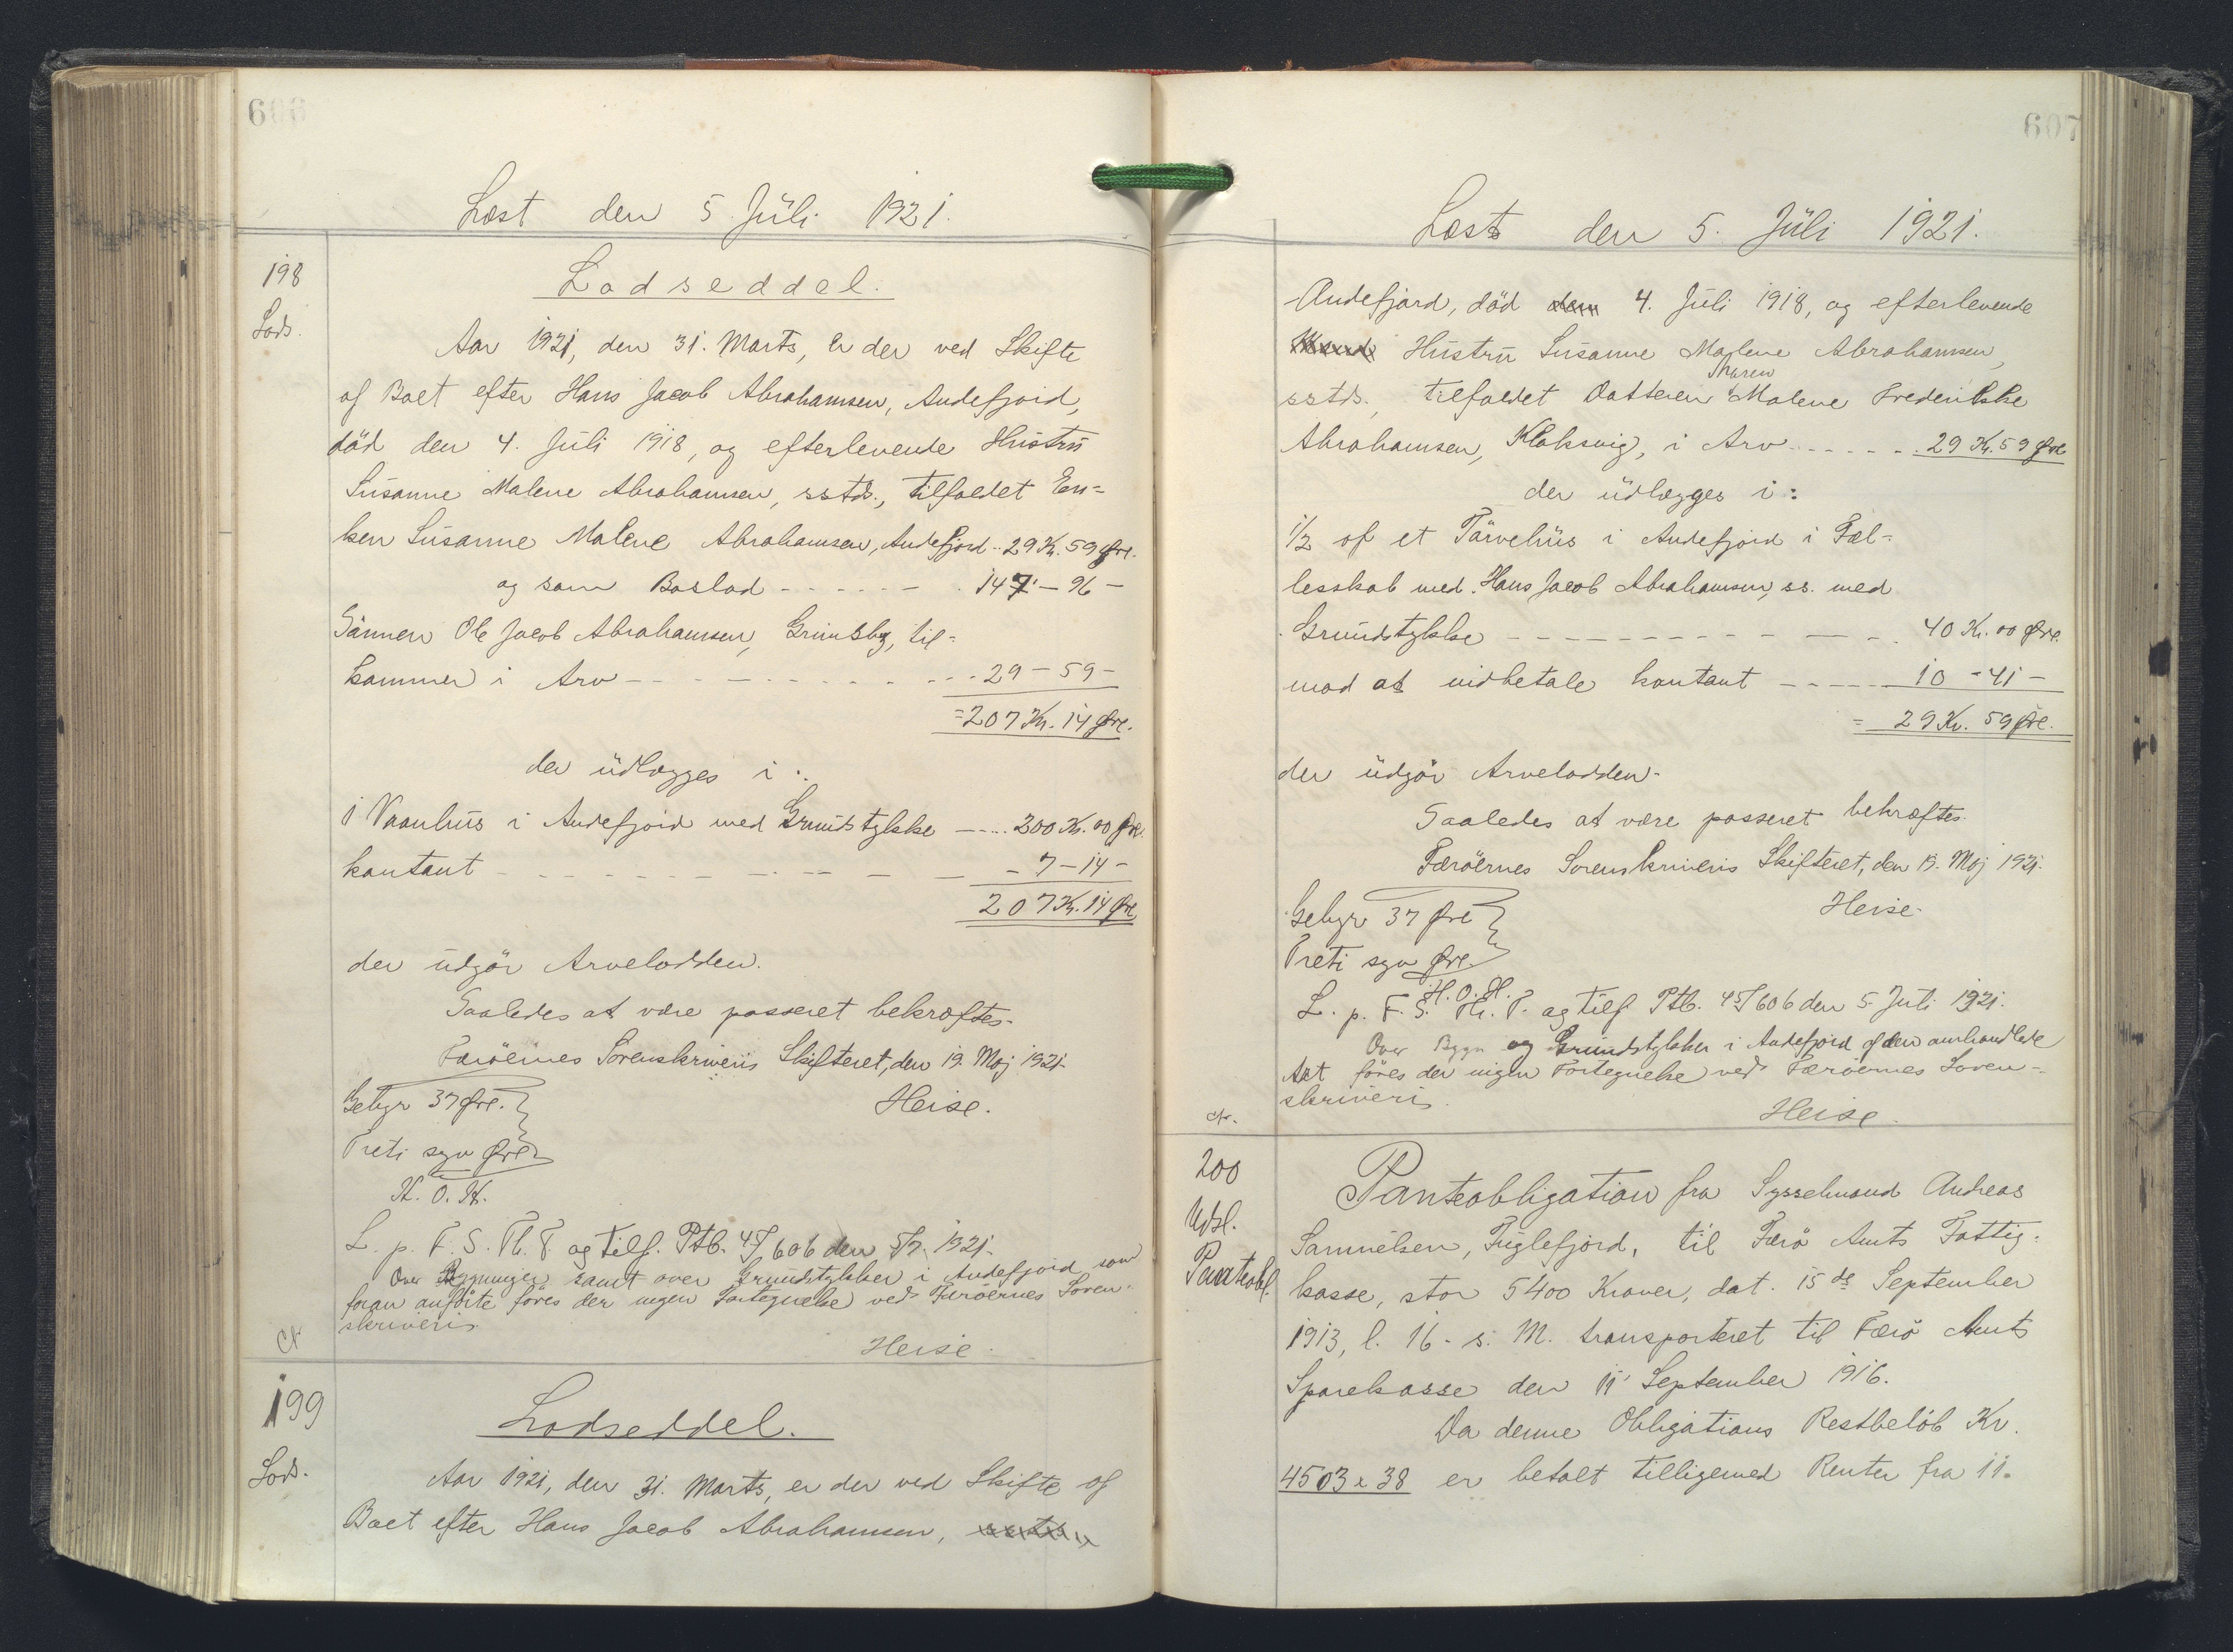 606
Læst den 5 Júli 1921.
198
Lods.
Lodseddel.
Aar 1921, den 31. Marts, er der ved Skifte
af Boet efter Hans Jacob Abrahamsen, Andefjord,
död den 4. Júli 1918, og efterlevende Hústrú
Súsanne Malene Abrahamsen, sstds., tilfaldet En-
ken Súsanne Malene Abrahamsen, Andefjord .. 29 Kr. 59 Øre.
og som Boslod - - - - - - 147 - 96 -
Sönnen Ole Jacob Abrahamsen, Grimsby, til-
kommer i Arv - - - - - - - - - 29 - 59 -
= 207 Kr. 14 Øre.
der údlægges i:
1 Vaanhús i Andefjord med Grúndstykke ---- 200 Kr. 00 Øre.
kontant - - - - - - - - - - 7 - 14 -
207 Kr. 14 Øre
der údgör Arvelodden.
Saaledes at være passeret bekræftes.
Færöernes Sorenskriveris Skifteret, den 19. Maj 1921.
Gebyr 37 Øre.
Heise.
Treti syv Øre
H. O. H.
L. p. F. S. Th. T. og tilf. Ptb. 45/606 den 5/7 1921.
Over Bygninger samt over Grúndstykker i Andefjord som
foran anförte föres der ingen Fortegnelse ved Færöernes Soren-
skriveri.
Heise.
199
Lods.
Lodseddel.
Aar 1921, den 31. Marts, er der ved Skifte af
Boet efter Hans Jacob Abrahamsen, sstds.,
607
Læst den 5. Júli 1921.
Andefjord, död den 4. Júli 1918, og efterlevende
Mand Hústrú Súsanne Malene Abrahamsen,
Maren
sstds., tilfaldet Datteren Malene Frederikke
Abrahamsen, Klaksvig, i Arv - - - - - 29 Kr. 59 Øre
der údlægges i:
1/2 af et Törvehús i Andefjord i Fæl-
lesskab med Hans Jacob Abrahamsen, ss. med
Grúndstykke - - - - - - - - - - 40 Kr. 00 Øre.
mod at indbetale kontant - - - - - 10 - 41 -
= 29 Kr. 59 Øre.
der údgör Arvelodden.
Saaledes at være passeret bekræftes.
Færöernes Sorenskriveris Skifteret, den 19. Maj 1921.
Gebyr 37 Øre
Heise.
Treti syv Øre
H. O. H.
L. p. F. S. Th. T. og tilf. Ptb. 45/606 den 5. Juli 1921.
Over Bygn og Grúndstykker i Andefjord af den omhandlede
Art föres der ingen Fortegnelse ved Færöernes Soren-
skriveri.
Heise.
200
Udsl.
Panteobl.
Panteobligation fra Sysselmand Andreas
Samúelsen, Fúglefjord, til Færö Amts Fattig-
kasse, stor 5400 Kroner, dat. 15de September
1913, l. 16. s. M. transporteret til Færö Amts
Sparekasse den 11' September 1916.
Da denne Obligations Restbelöb Kr.
4503 x 38 er betalt tilligemed Renter fra 11.